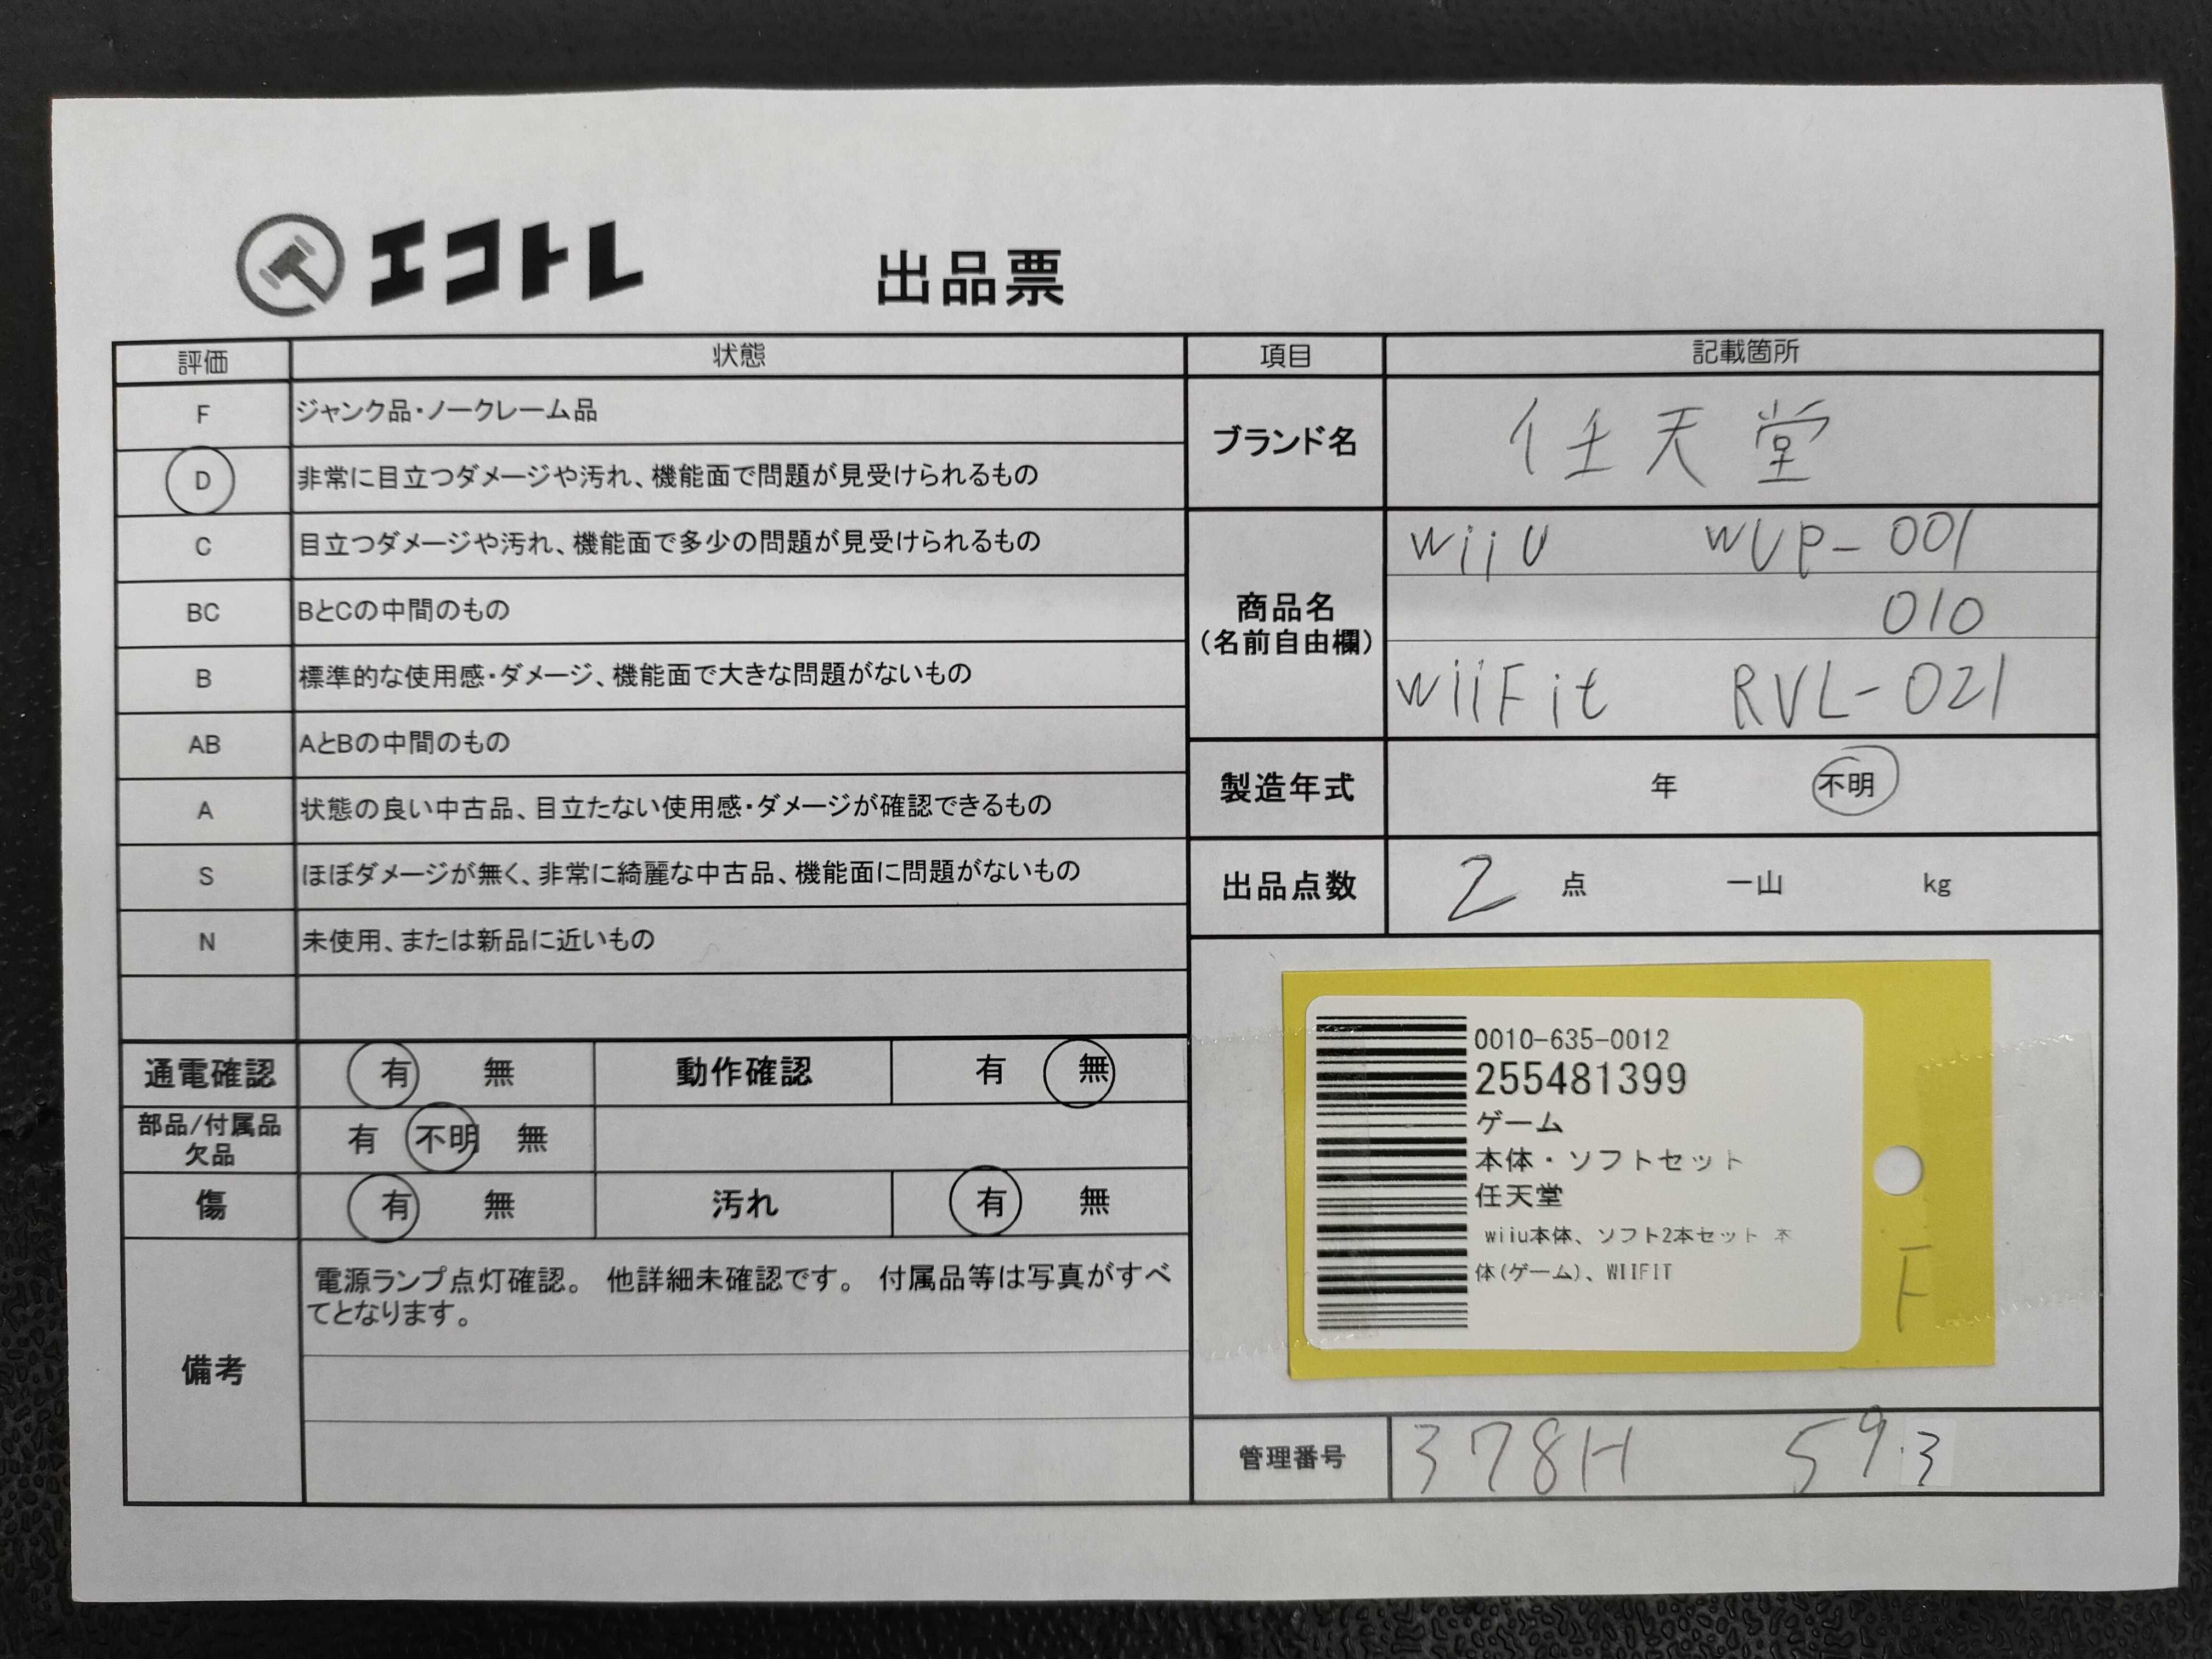 エコトレ
出品票
評価 状態
F ジャンク品・ノークレーム品
D 非常に目立つダメージや汚れ、機能面で問題が見受けられるもの
C 目立つダメージや汚れ、機能面で多少の問題が見受けられるもの
BC BとCの中間のもの
B 標準的な使用感・ダメージ、機能面で大きな問題がないもの
AB AとBの中間のもの
A 状態の良い中古品、目立たない使用感・ダメージが確認できるもの
S ほぼダメージが無く、非常に綺麗な中古品、機能面に問題がないもの
N 未使用、または新品に近いもの
通電確認 有 無 動作確認 有 無
部品/付属品
欠品
有 不明 無
傷 有 無 汚れ 有 無
備考
電源ランプ点灯確認。 他詳細未確認です。 付属品等は写真がすべ
てとなります。
項目 記載箇所
ブランド名 任天堂
商品名
(名前自由欄)
wiiU WUP-001
010
wiiFit RVL-021
製造年式 年 不明
出品点数 2 点 一山 kg
0010-635-0012
255481399
ゲーム
本体・ソフトセット
任天堂
wiiu本体、ソフト2本セット 本
体(ゲーム)、WIIFIT
F
管理番号 378H 59.3